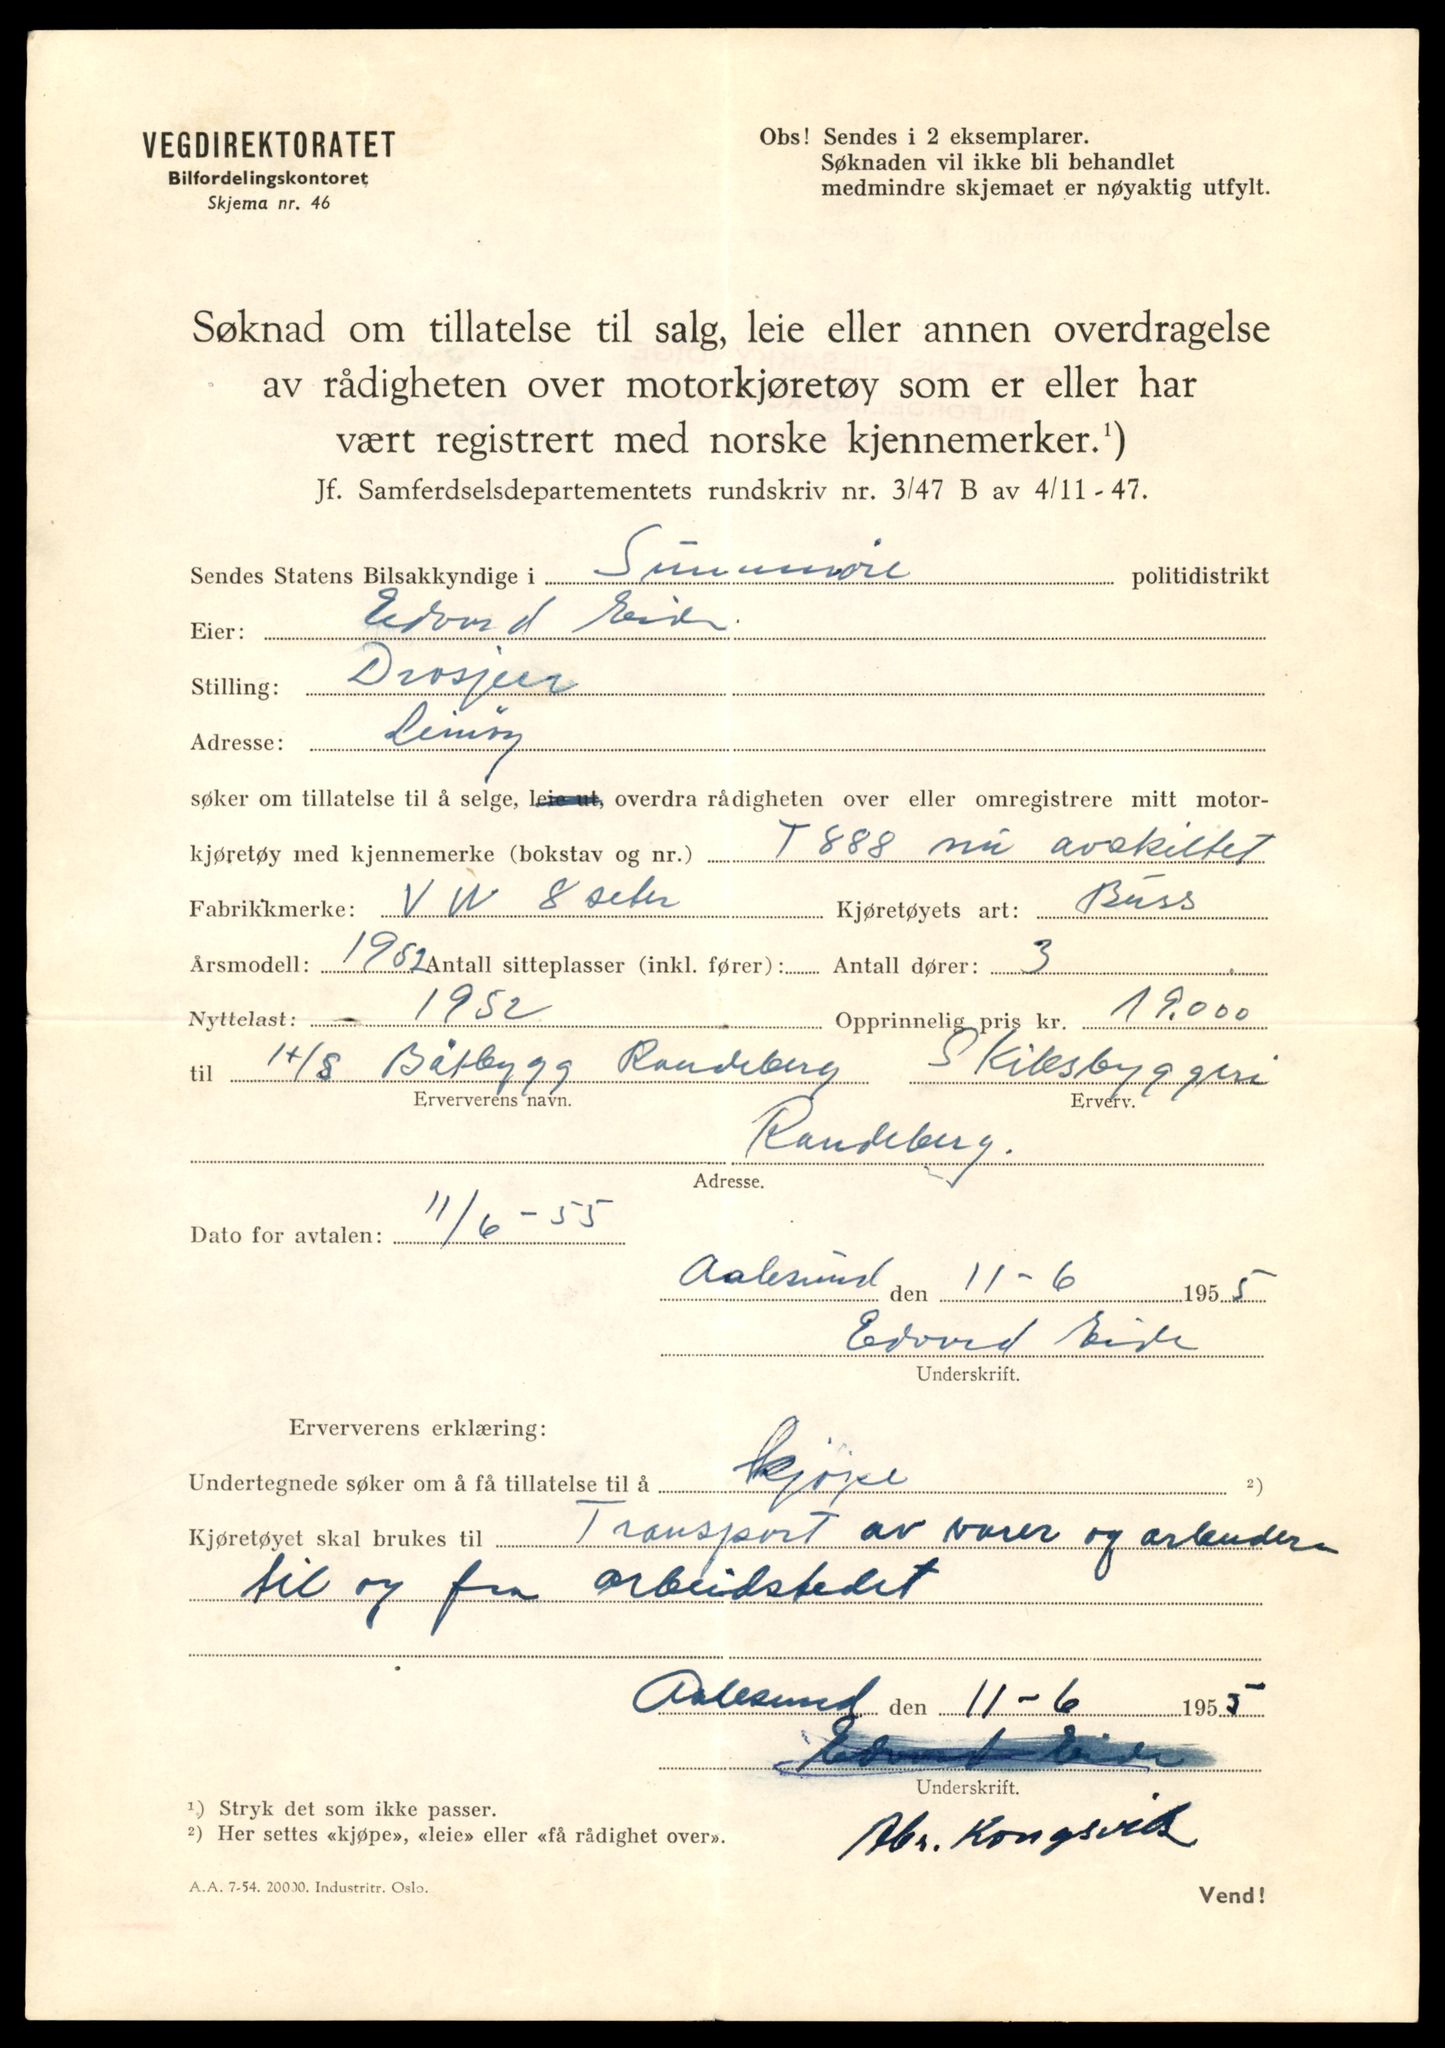 VEGDIREKTORATET
Bilfordelingskontoret
Skjema nr. 46
Obs! Sendes i 2 eksemplarer.
Søknaden vil ikke bli behandlet
medmindre skjemaet er nøyaktig utfylt.
Søknad om tillatelse til salg, leie eller annen overdragelse
av rådigheten over motorkjøretøy som er eller har
vært registrert med norske kjennemerker.¹)
Jf. Samferdselsdepartementets rundskriv nr. 3/47 B av 4/11 - 47.
Sendes Statens Bilsakkyndige i Sunnmöre politidistrikt
Eier: Edvard Eide
Stilling: Drosjeeier
Adresse:
søker om tillatelse til å selge, leie ut, overdra rådigheten over eller omregistrere mitt motor-
kjøretøy med kjennemerke (bokstav og nr.) T 888 nu avskiltet
Fabrikkmerke: VW 8 seter Kjøretøyets art: Buss
Årsmodell: 1952 Antall sitteplasser (inkl. fører): Antall dører: 3
Nyttelast: 1952 Opprinnelig pris kr. 19.000
til Båtbygg Randeberg Skibsbyggeri
Erververens navn. Erverv.
Randeberg.
Adresse.
Dato for avtalen: 11/6 - 55
Aalesund den 11 - 6 1955
Edvard Eide
Underskrift.
Erververens erklæring:
Undertegnede søker om å få tillatelse til å kjöpe ²)
Kjøretøyet skal brukes til Transport av varer og arbeidere
til og fra arbeidstedet
Aalesund den 11 - 6 1955
Edvard Eide
Underskrift.
Abr. Kongsvik
¹) Stryk det som ikke passer.
²) Her settes «kjøpe», «leie» eller «få rådighet over».
A.A. 7-54. 20000. Industritr. Oslo.
Vend!